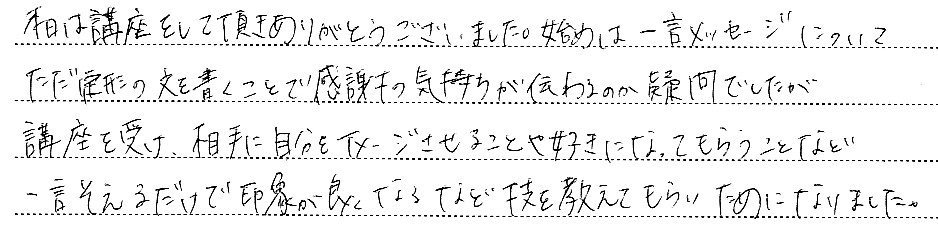 本日は講座をして頂きありがとうございました。始めは一言メッセージについて
ただ定形の文を書くことで感謝の気持ちが伝わるのか疑問でしたが
講座を受け、相手に自分をイメージさせることや好きになってもらうことなど
一言そえるだけで印象が良くなるなど技を教えてもらいためになりました。